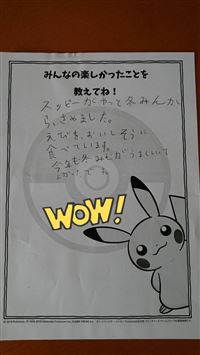 みんなの楽しかったことを
教えてね!
スッピーがやっと冬みんか
らさめました。
えびを、おいしそうに
食べています。
今年も冬みんがうまくいって
よかったです
WOW!